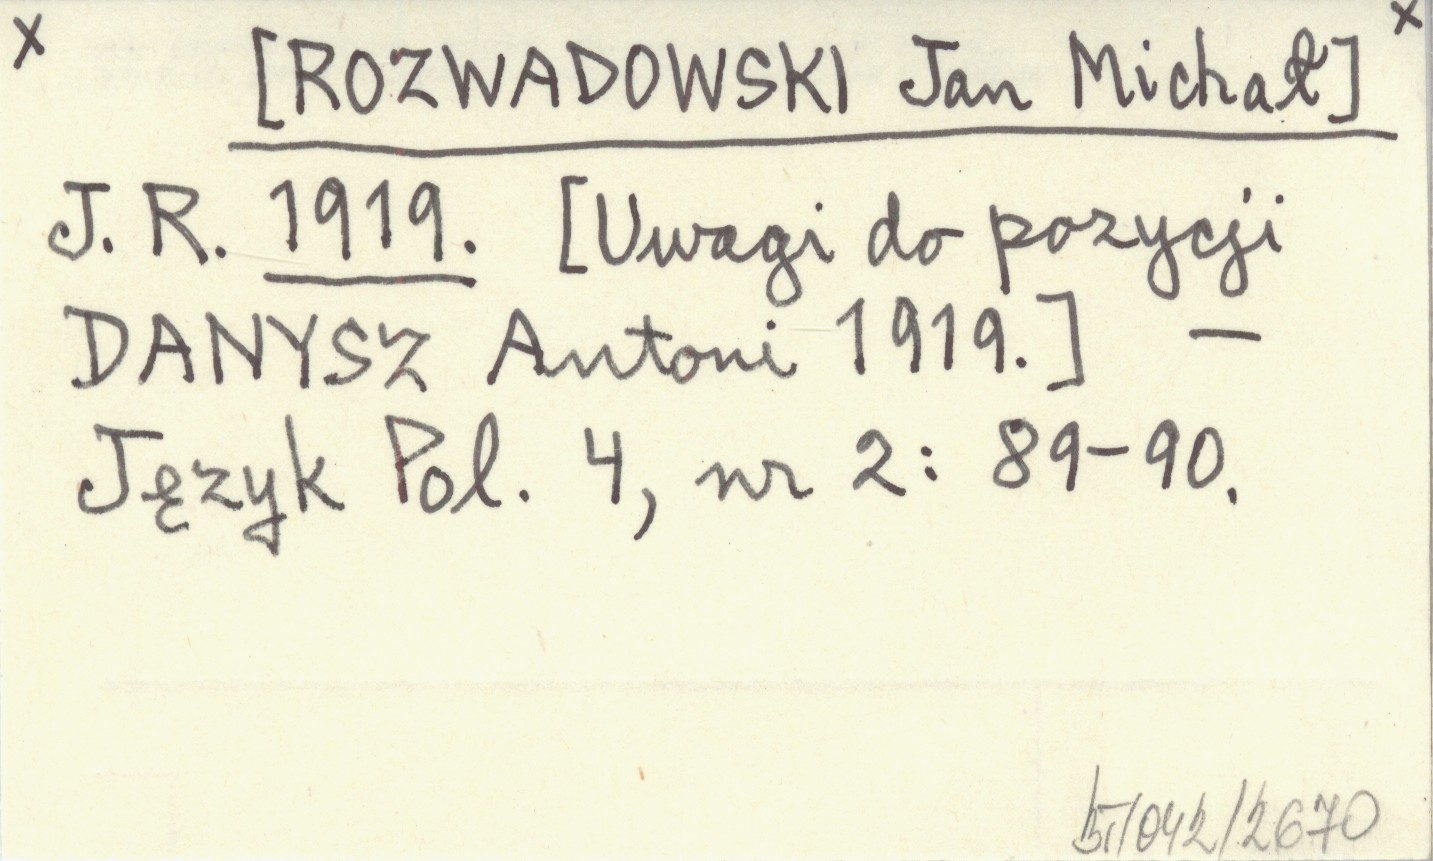 x [ROZWADOWSKI Jan Michał] x
J. R. 1919. [Uwagi do pozycji
DANYSZ Antoni 1919.] —
Język Pol. 4, nr 2: 89-90.
/042/2670